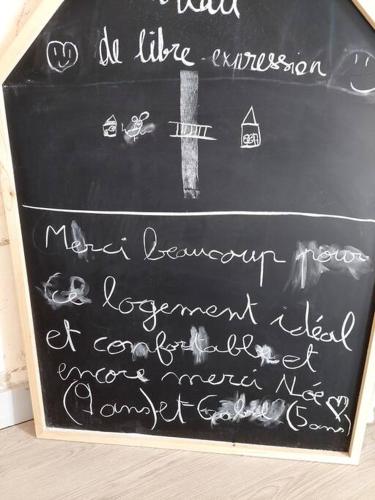 de libre expression
Merci beaucoup pour
ce logement idéal
et confortable et
encore merci Noé
(9 ans) et Gabriel (5 ans)